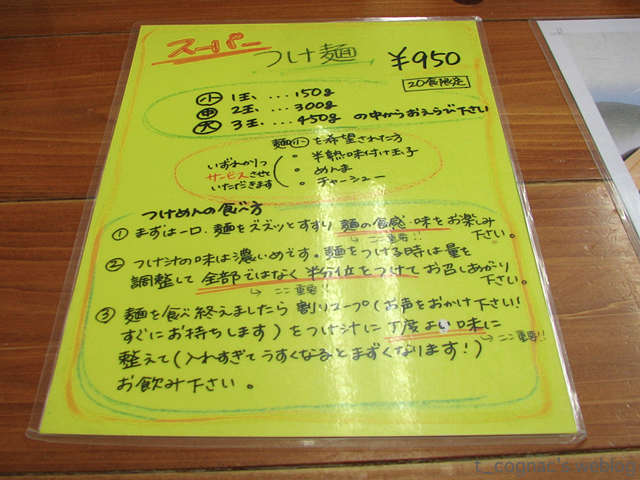 スーパー
つけ麺 ¥950
20食限定
小 1玉、...150g
中 2玉、...300g
大 3玉、...450g の中からおえらび下さい
麺小を希望された方
いずれか1つ
サービスさせて
いただきます
・半熟味付け玉子
・めんま
・チャーシュー
つけめんの食べ方
① まずは一口、麺をズズッとすすり麺の食感、味をお楽しみ
下さい。
↳ ここ重要!!
② つけ汁の味は濃いめです。麺をつける時は量を
調整して全部ではなく半分位をつけてお召しあがり
下さい。
↳ ここ重要!!
③ 麺を食べ終えましたら割りスープ(お声をおかけ下さい!
すぐにお持ちします)をつけ汁に丁度よい味に
↳ ここ重要!!
整えて(入れすぎてうすくなるとまずくなります!)
お飲み下さい。